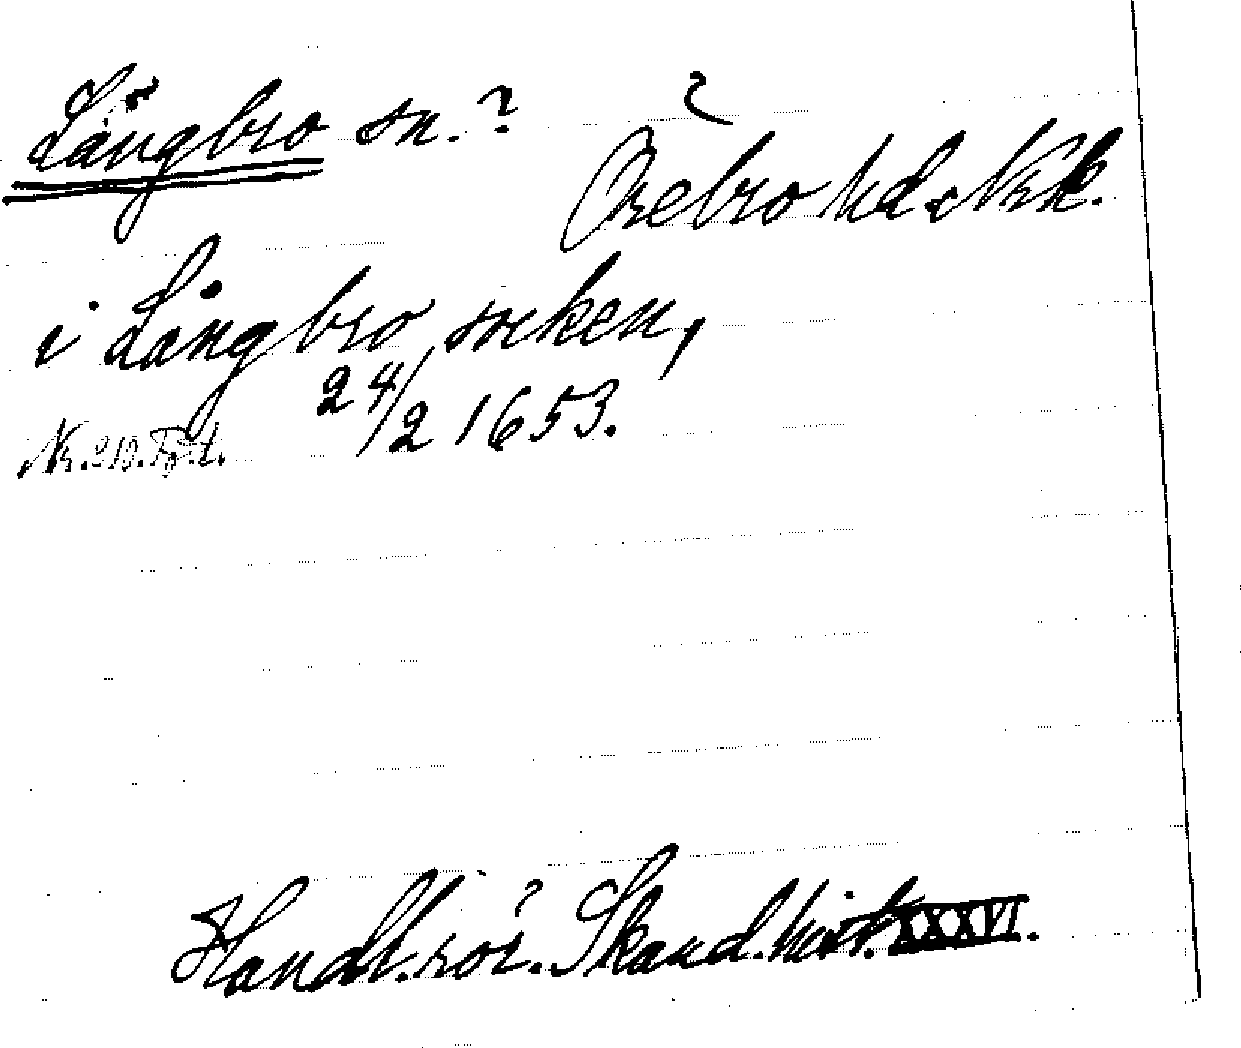 Långbro sn.?
Örebro hd. Nrk.
i Långbro socken,
24/2 1653.
Handl. rör. Skand. hist. XXXVI.